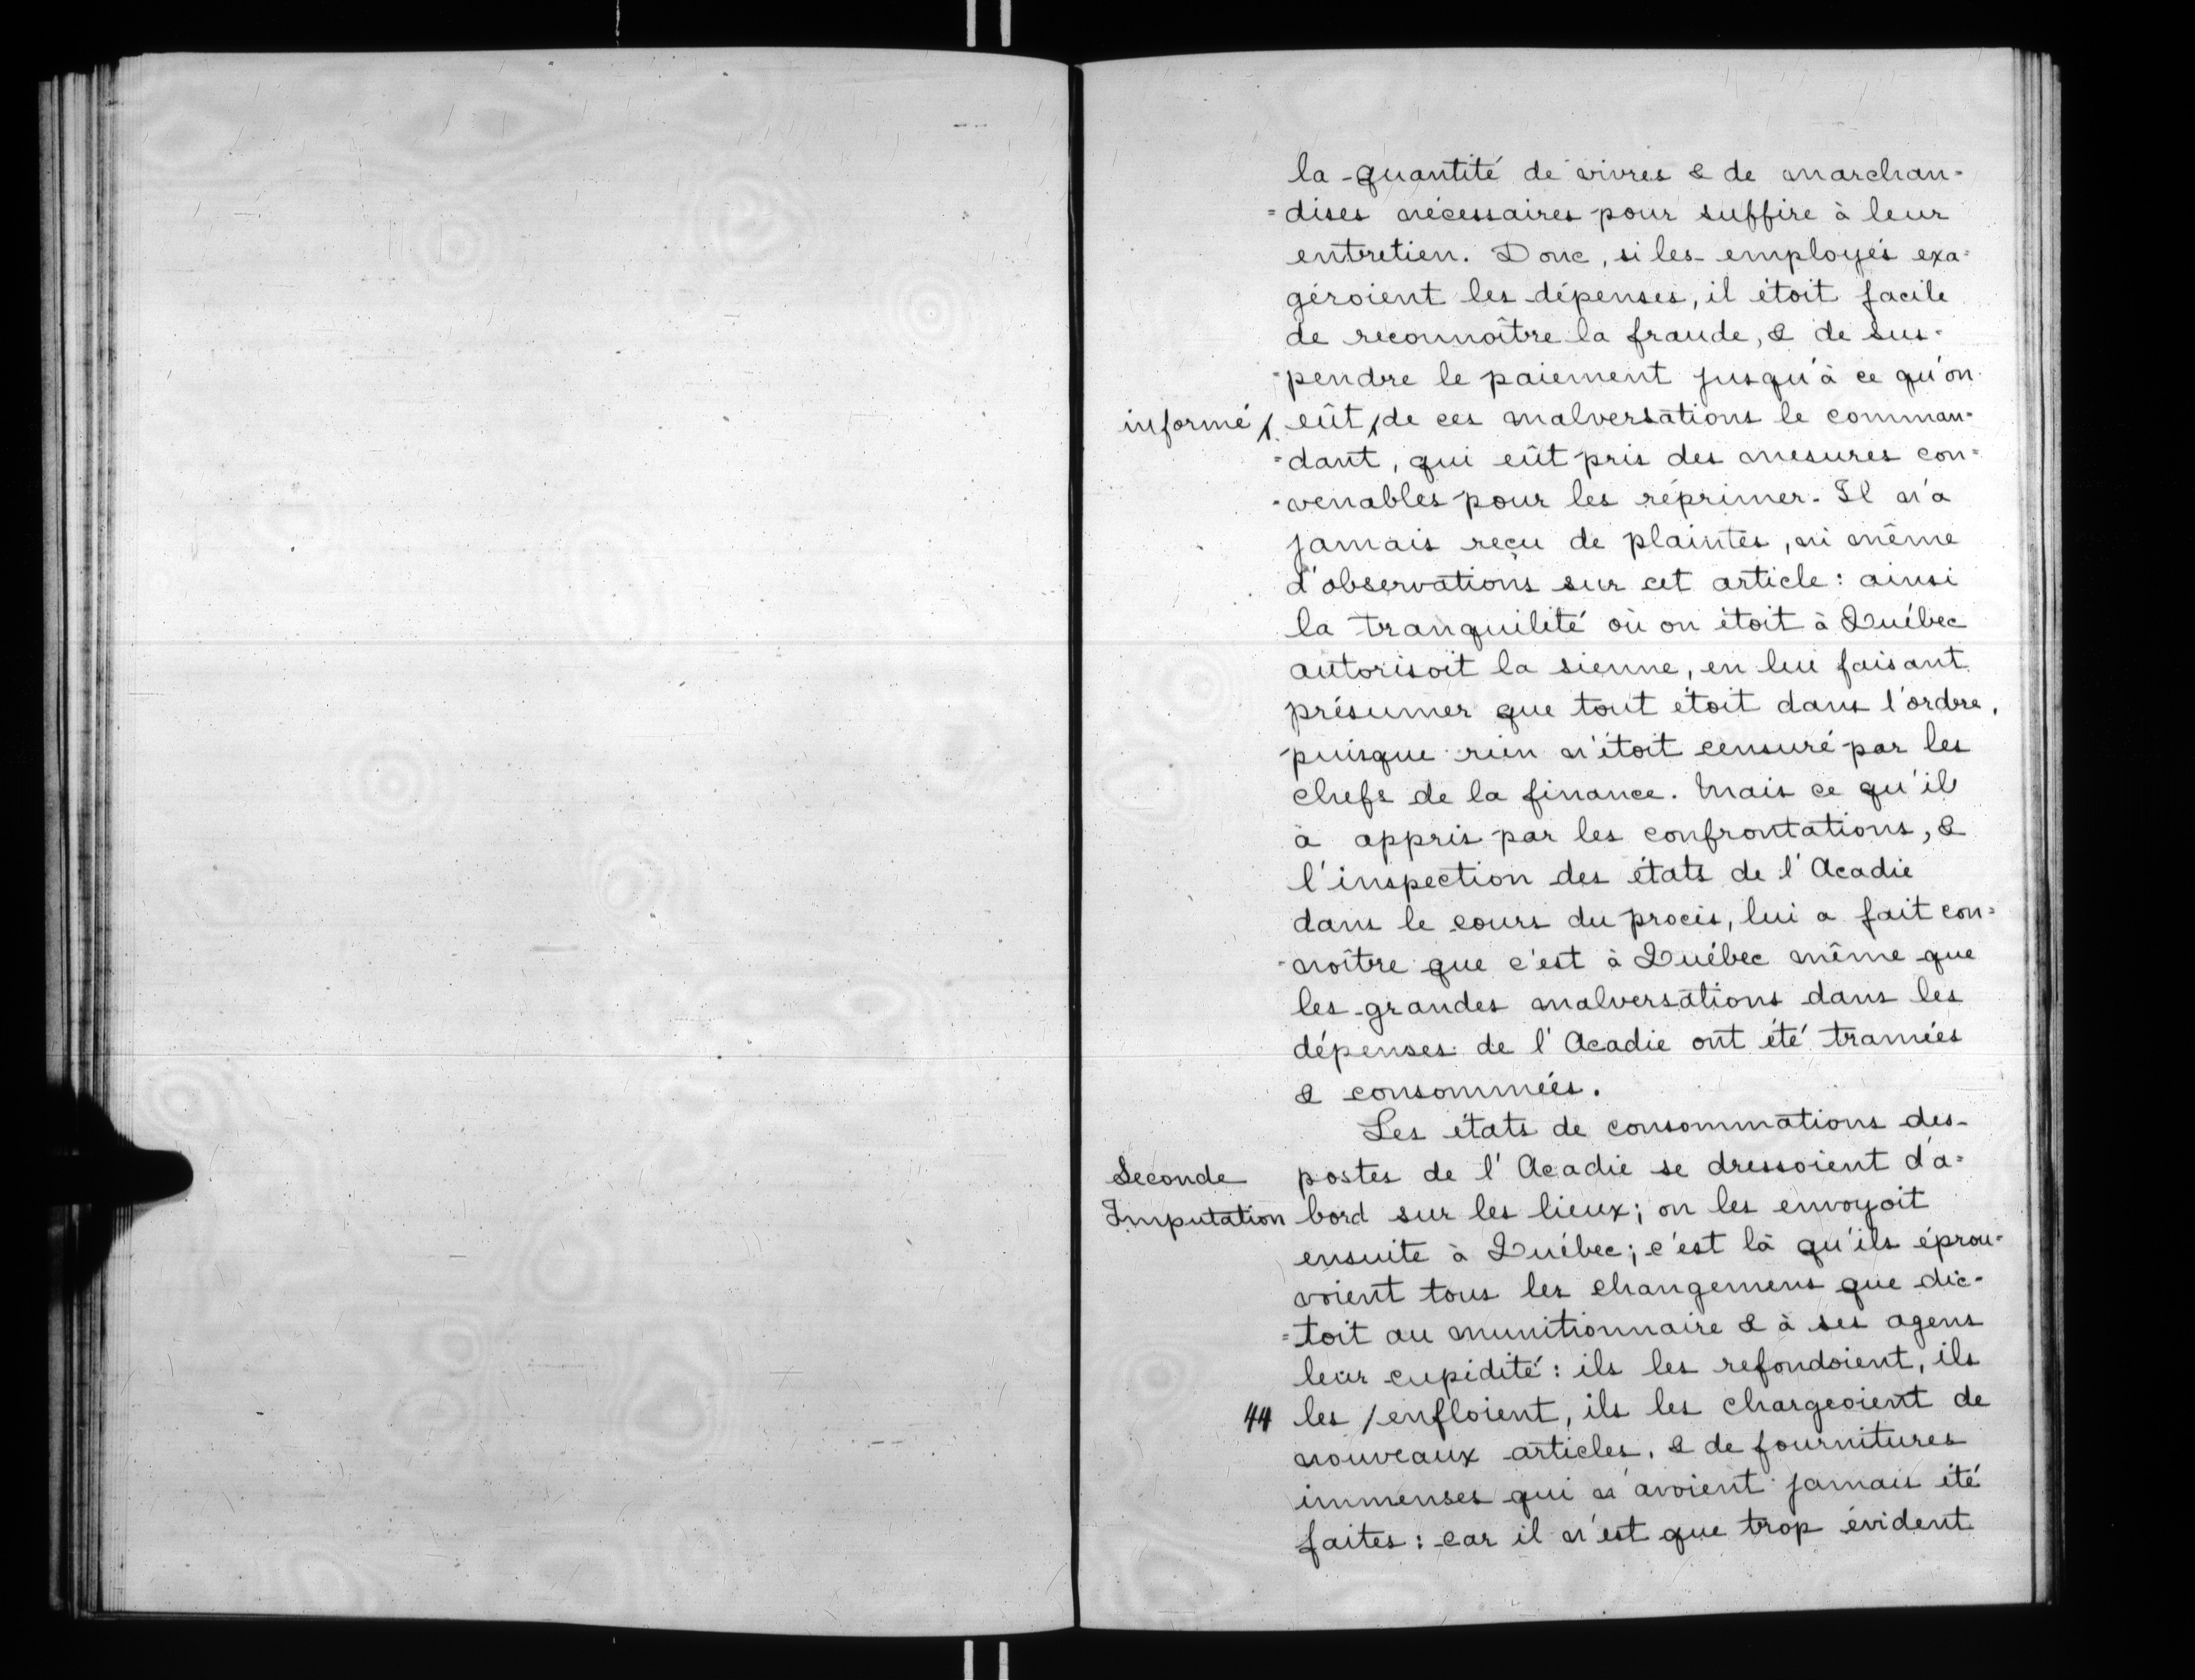 la quantité de vivres & de marchan-
=dises nécessaires pour suffire à leur
entretien. Donc, si les employés exa=
géroient les dépenses, il étoit facile
de reconnoître la fraude, & de sus-
-pendre le paiement jusqu'à ce qu'on
informé / eût / de ces malversations le comman=
=dant, qui eût pris des mesures con=
-venables pour les réprimer. Il n'a
jamais reçu de plaintes, ni même
d'observations sur cet article : ainsi
la tranquilité où on étoit à Québec
autorisoit la sienne, en lui faisant
présumer que tout étoit dans l'ordre,
puisque rien n'étoit censuré par les
chefs de la finance. Mais ce qu'il
à appris par les confrontations, &
l'inspection des états de l'Acadie
dans le cours du procès, lui a fait con=
-noître que c'est à Québec même que
les grandes malversations dans les
dépenses de l'Acadie ont été tramées
& consommées.
Les états de consommations des
Seconde postes de l'Acadie se dressoient d'a=
Imputation bord sur les lieux; on les envoyoit
ensuite à Québec; c'est là qu'ils éprou=
voient tous les changemens que dic-
=toit au munitionnaire & à ses agens
leur cupidité : ils les refondoient, ils
44 les / enfloient, ils les chargeoient de
nouveaux articles, & de fournitures
immenses qui n'avoient jamais été
faites : car il n'est que trop évident